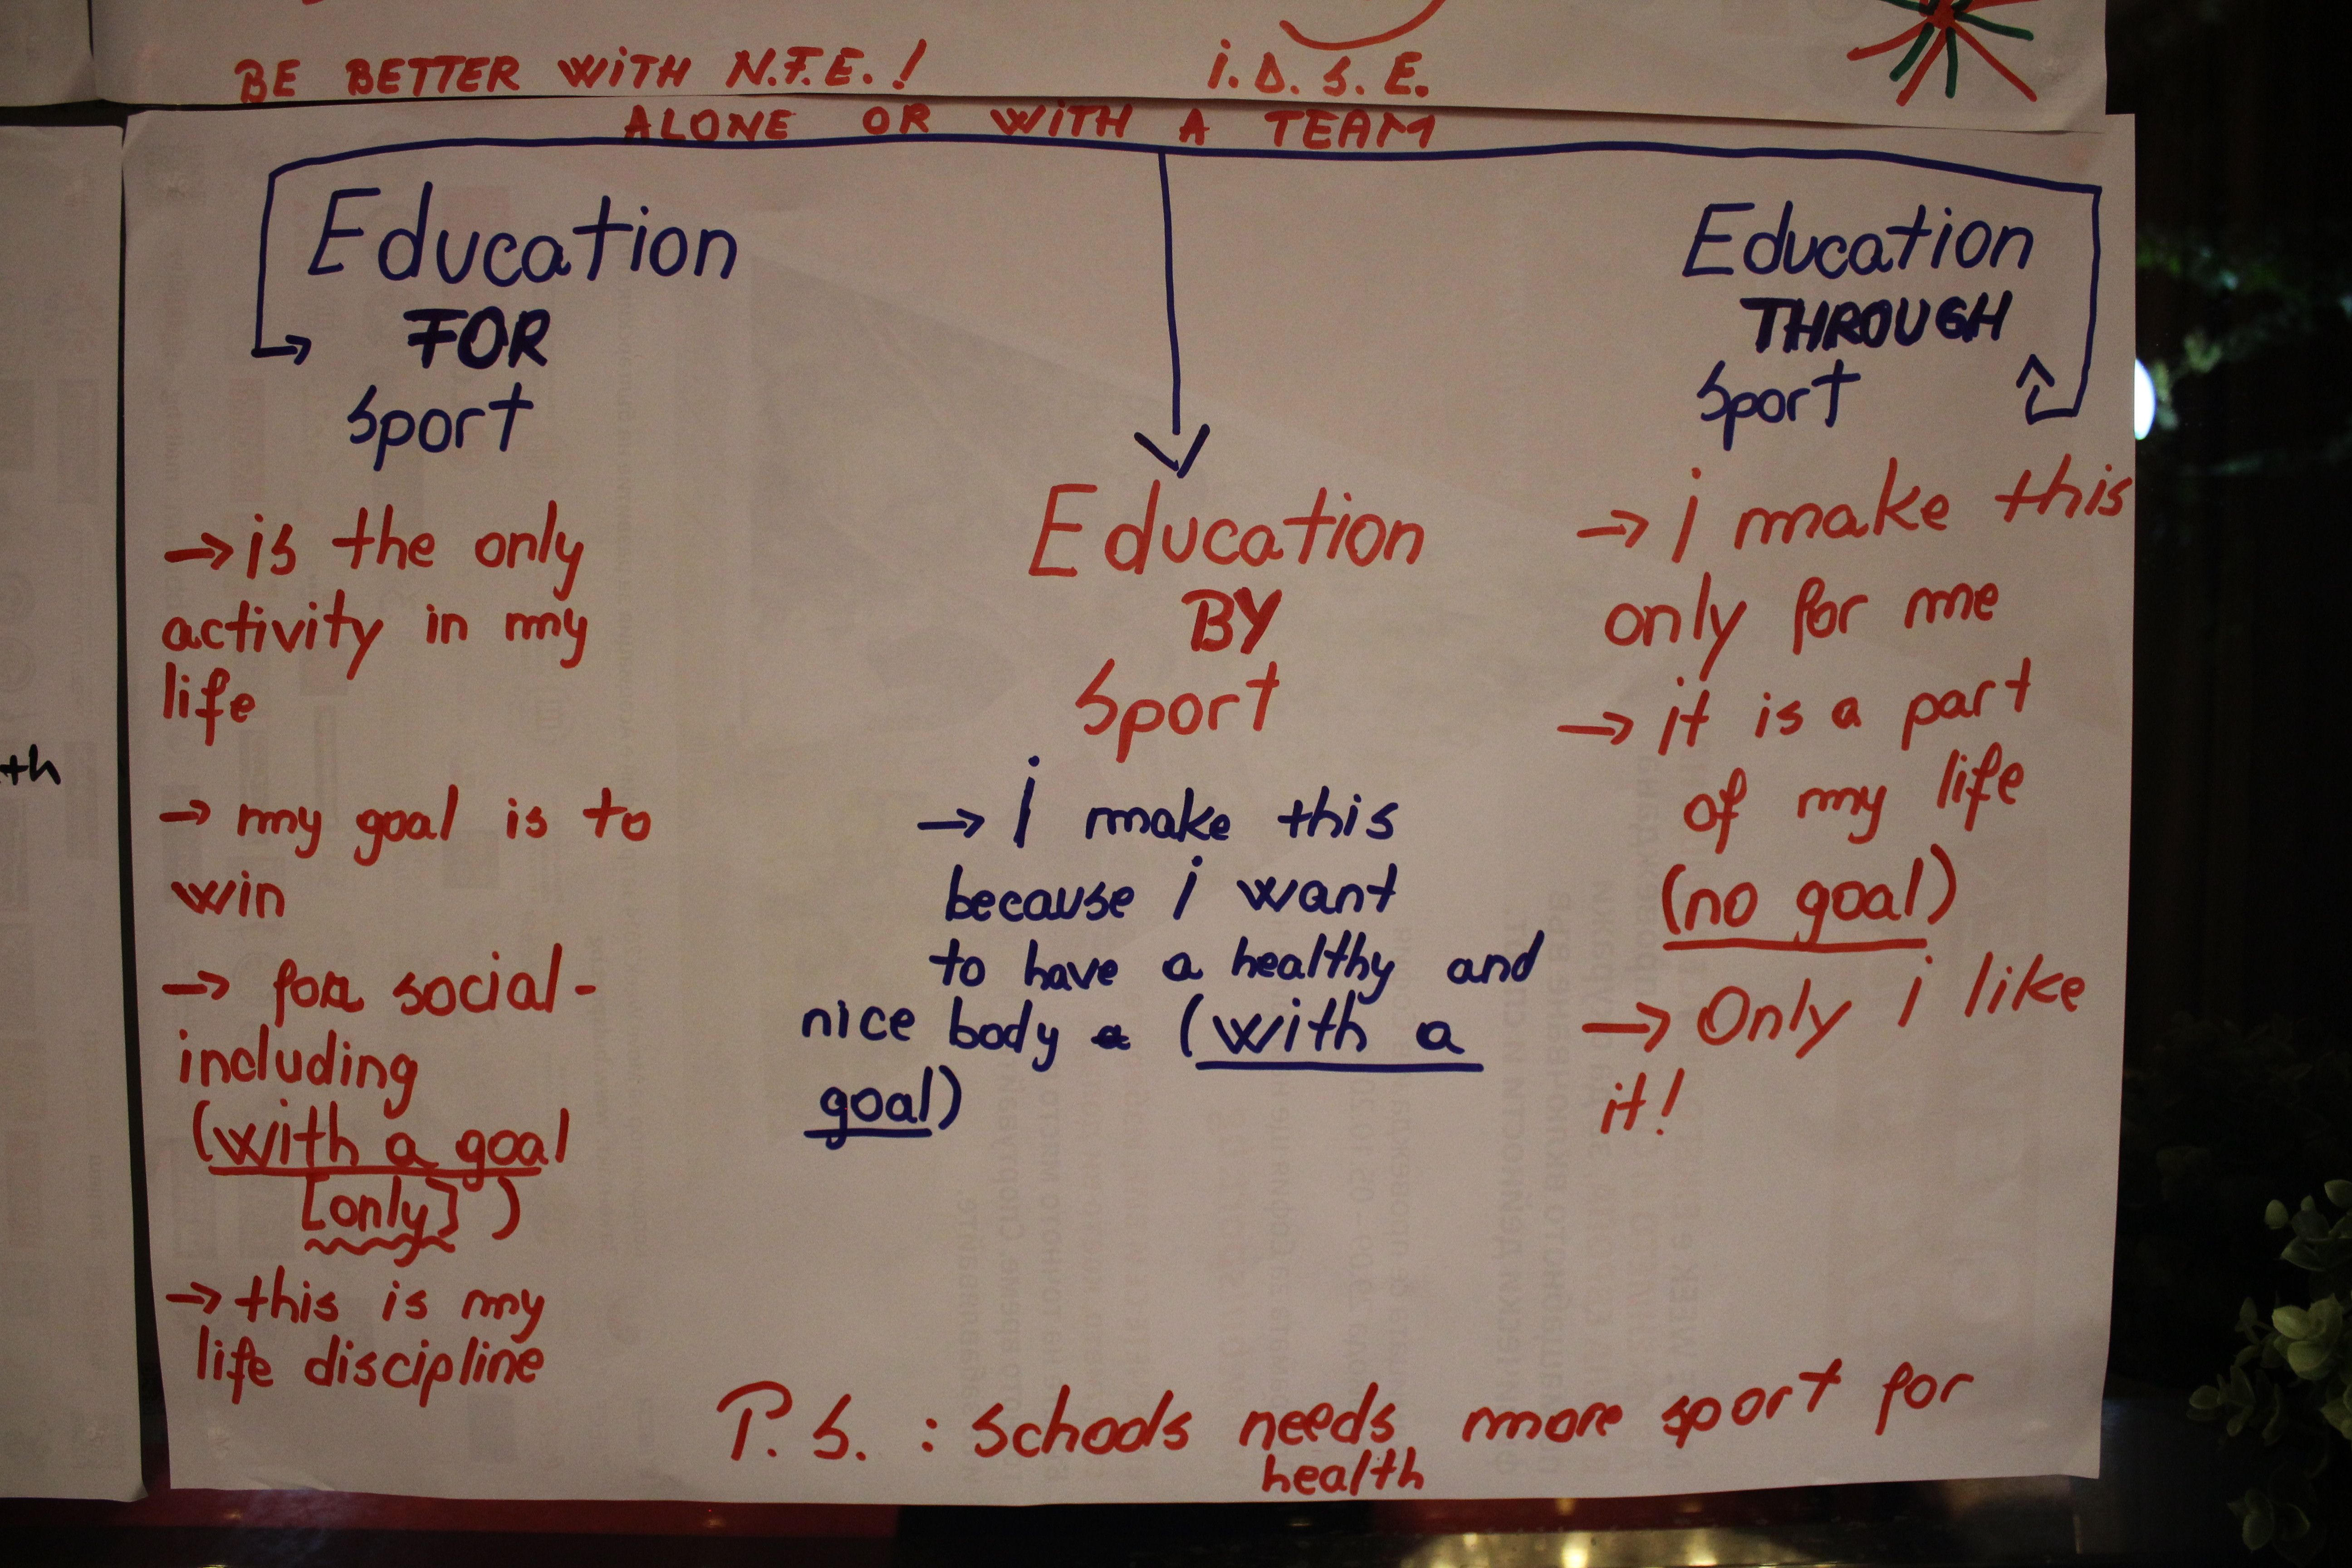 BE BETTER WITH N.F.E.!
I.D.S.E.
ALONE OR WITH A TEAM
Education
FOR
Sport
→ is the only
activity in my
life
→ my goal is to
win
→ for social-
including
(with a goal
[only])
→ this is my
life discipline
Education
BY
Sport
→ i make this
because i want
to have a healthy and
nice body (with a
goal)
Education
THROUGH
Sport
→ i make this
only for me
→ it is a part
of my life
(no goal)
→ Only i like
it!
P.S.: Schools needs more sport for
health
th